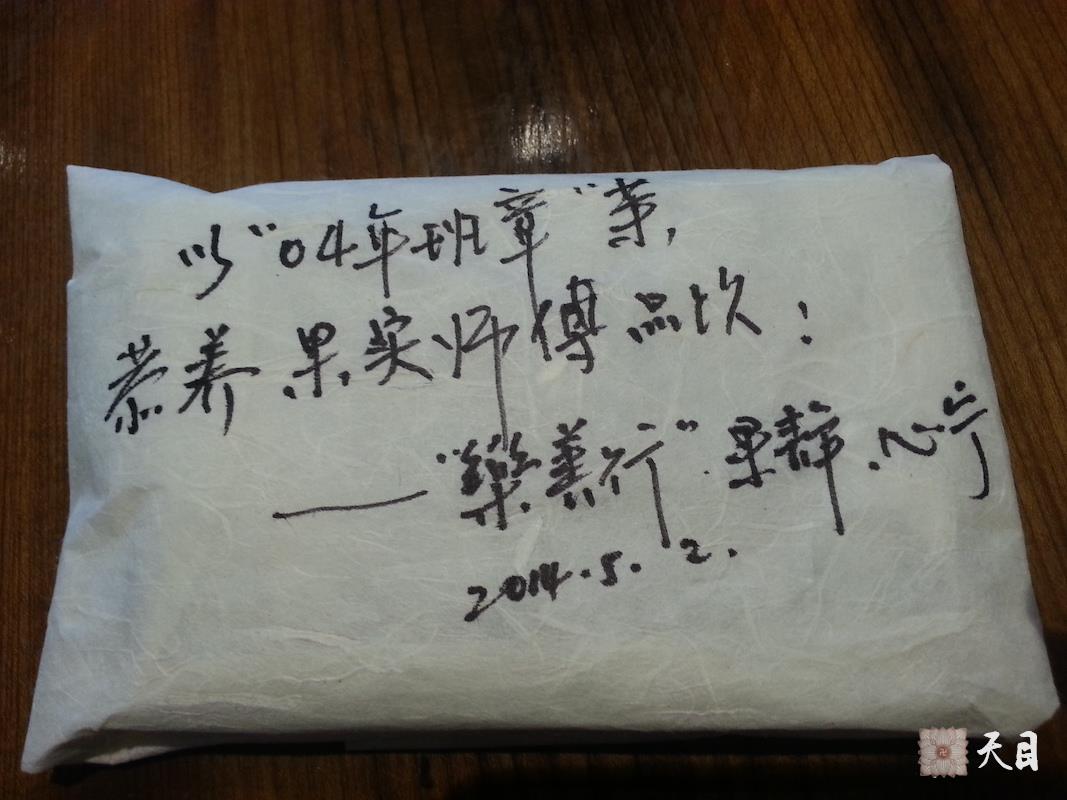 以"04年班章"茶,
恭养果实师傅品饮!
——"藥善行"果静.心宁
2014.5.2.
天目